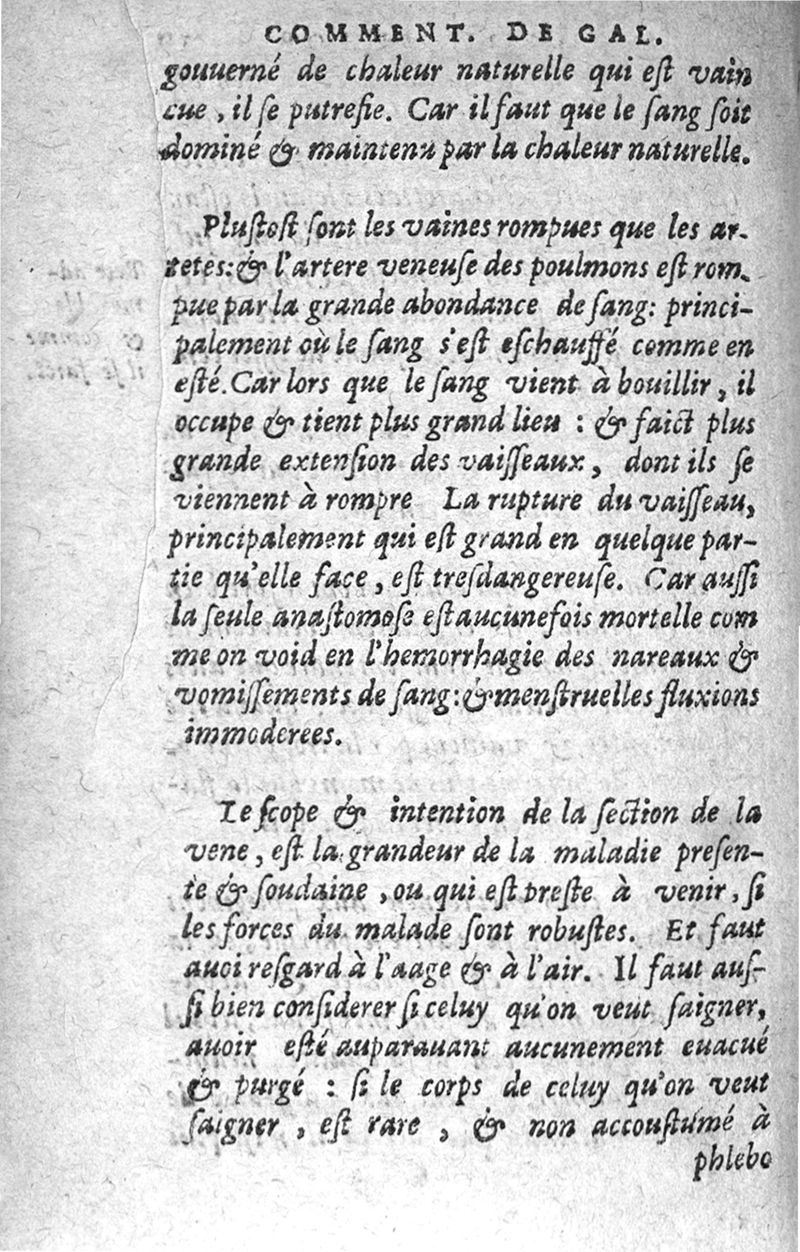 COMMENT. DE GAL.
gouuerné de chaleur naturelle qui eſt vain
cue, il ſe putrefie. Car il faut que le ſang ſoit
dominé & maintenu par la chaleur naturelle.
Pluſtoſt ſont les vaines rompues que les ar-
teres: & l'artere veneuſe des poulmons eſt rom-
pue par la grande abondance de ſang: princi-
palement où le ſang s'eſt eſchauffé comme en
eſté. Car lors que le ſang vient à bouillir, il
occupe & tient plus grand lieu : & faict plus
grande extenſion des vaiſſeaux, dont ils ſe
viennent à rompre La rupture du vaiſſeau,
principalement qui eſt grand en quelque par-
tie qu'elle face, eſt treſdangereuſe. Car auſſi
la ſeule anaſtomoſe eſt aucunefois mortelle com
me on void en l'hemorrhagie des nareaux &
vomiſſements de ſang: & menſtruelles fluxions
immoderees.
Le ſcope & intention de la ſection de la
vene, eſt la grandeur de la maladie preſen-
te & ſoudaine, ou qui eſt preſte à venir, ſi
les forces du malade ſont robuſtes. Et faut
auoi reſgard à l'aage & à l'air. Il faut auſ-
ſi bien conſiderer ſi celuy qu'on veut ſaigner,
auoir eſté auparauant aucunement euacué
& purgé : ſi le corps de celuy qu'on veut
ſaigner, eſt rare, & non accouſtumé à
phlebo